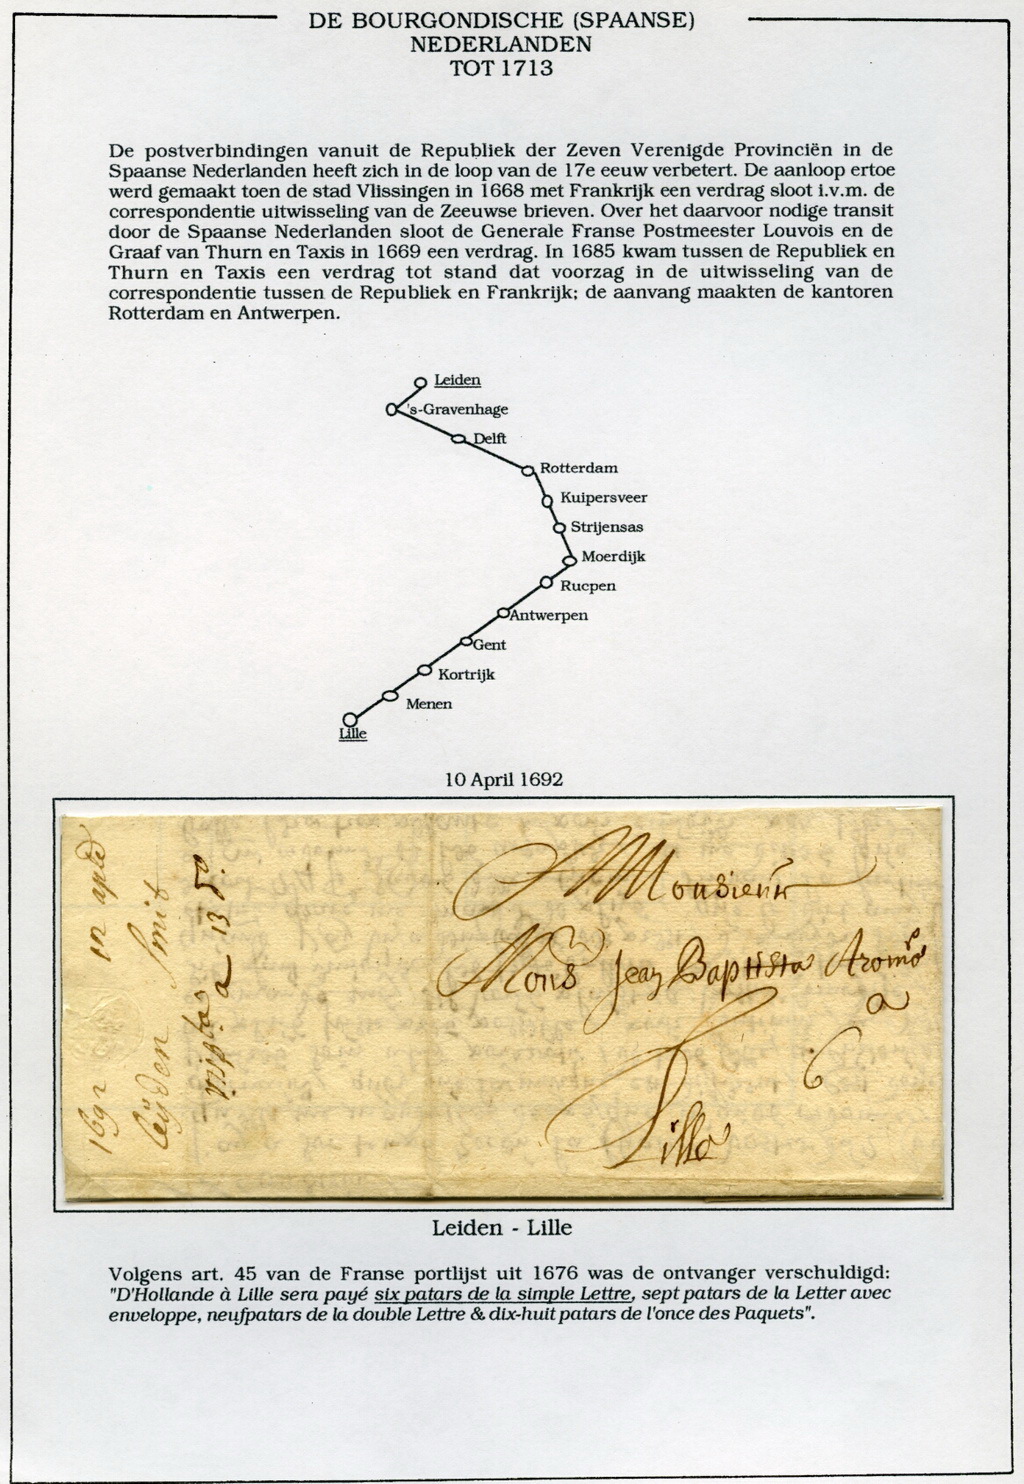 DE BOURGONDISCHE (SPAANSE)
NEDERLANDEN
TOT 1713
De postverbindingen vanuit de Republiek der Zeven Verenigde Provinciën in de
Spaanse Nederlanden heeft zich in de loop van de 17e eeuw verbetert. De aanloop ertoe
werd gemaakt toen de stad Vlissingen in 1668 met Frankrijk een verdrag sloot i.v.m. de
correspondentie uitwisseling van de Zeeuwse brieven. Over het daarvoor nodige transit
door de Spaanse Nederlanden sloot de Generale Franse Postmeester Louvois en de
Graaf van Thurn en Taxis in 1669 een verdrag. In 1685 kwam tussen de Republiek en
Thurn en Taxis een verdrag tot stand dat voorzag in de uitwisseling van de
correspondentie tussen de Republiek en Frankrijk; de aanvang maakten de kantoren
Rotterdam en Antwerpen.
Leiden
's-Gravenhage
Delft
Rotterdam
Kuipersveer
Strijensas
Moerdijk
Rucpen
Antwerpen
Gent
Kortrijk
Menen
Lille
10 April 1692
1692
leijden Smit
a 13
Monsieur
Mons Jean Baptista
a
6
Lille
Leiden - Lille
Volgens art. 45 van de Franse portlijst uit 1676 was de ontvanger verschuldigd:
"D'Hollande à Lille sera payé six patars de la simple Lettre, sept patars de la Letter avec
enveloppe, neufpatars de la double Lettre & dix-huit patars de l'once des Paquets".